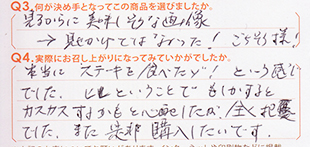 Q3.何が決め手となってこの商品を選びましたか。
見るからに美味しそうな画像
→見かけではなかった！ごちそう様！
Q4.実際にお召し上がりになってみていかがでしたか。
本当にステーキを食べたゾ！という感じ
でした。ということでもしかすると
カスカスするかもと心配したが、全く
でした。また是非購入したいです。